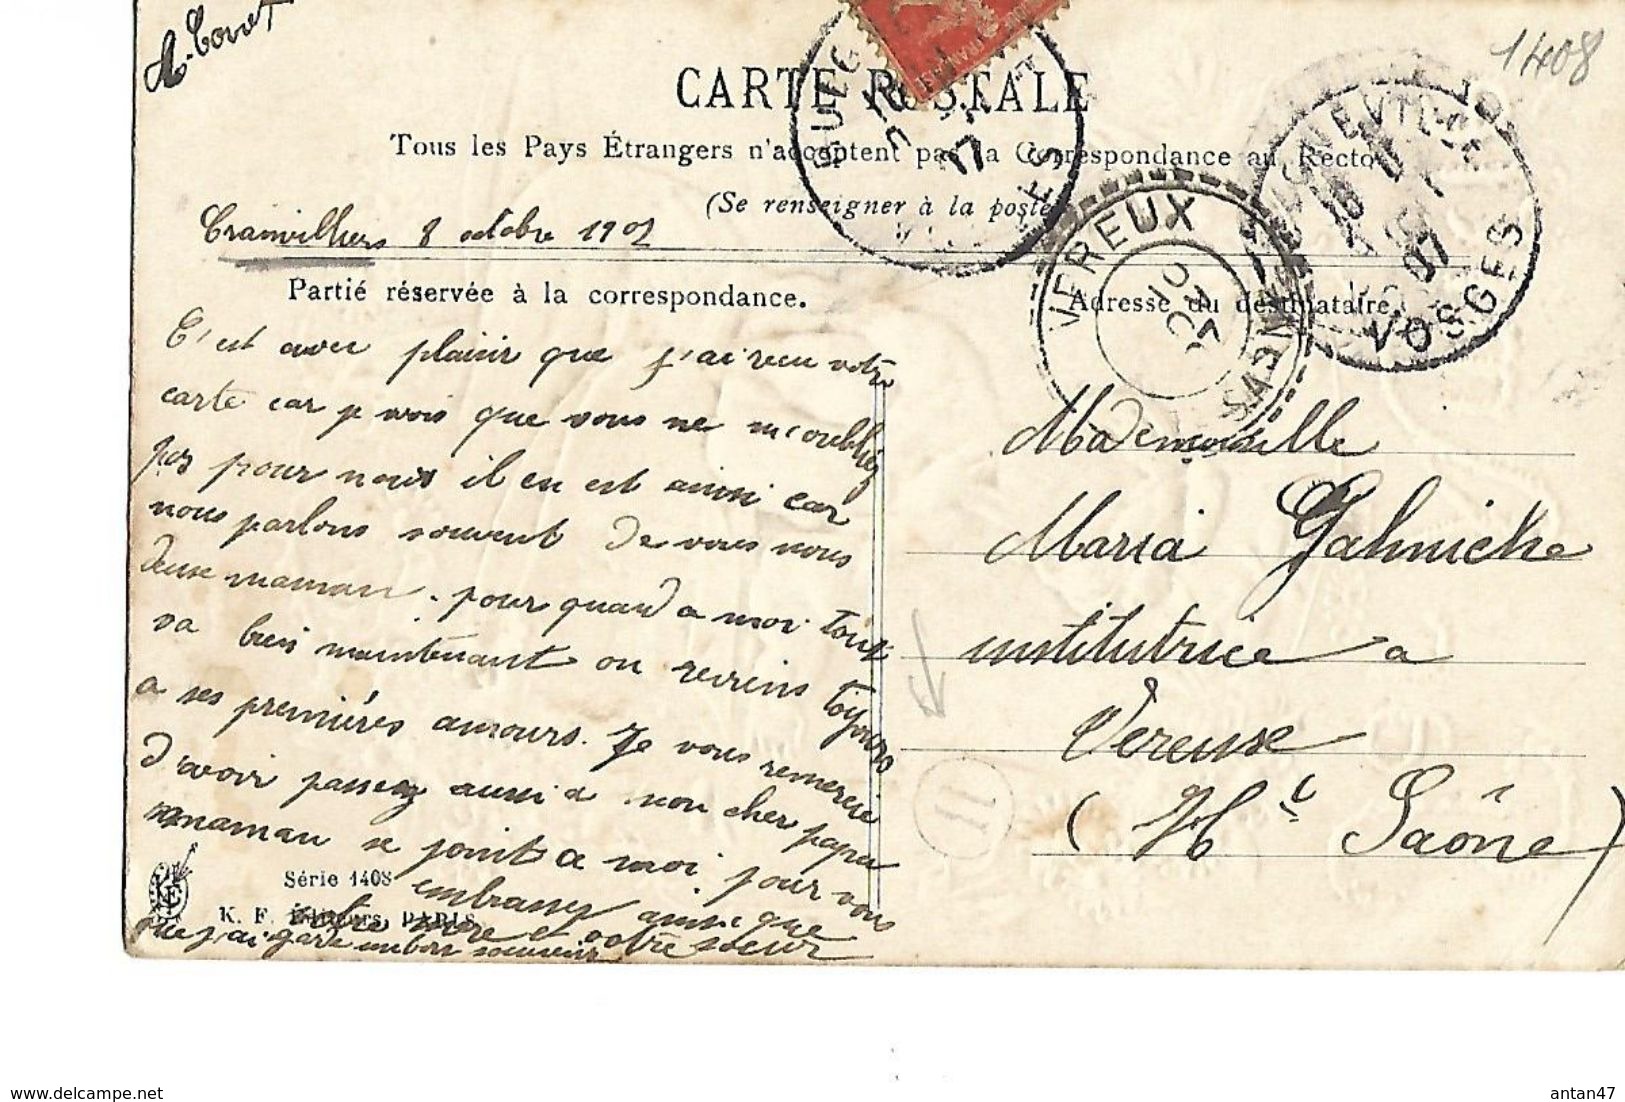 A. Tonet
1408
CARTE POSTALE
Tous les Pays Étrangers n'acceptent pas la Correspondance au Recto
(Se renseigner à la poste)
Tranvilliers 8 octobre 1907
Partie réservée à la correspondance.
Adresse du destinataire
VEREUX
VOSGES
C'est avec plaisir que j'ai reçu votre
carte car je vois que vous ne m'oubliez
pas pour nous il en est ainsi car
nous parlons souvent de vous nous
deux maman. pour quand a moi tout
va bien maintenant on reviens toujours
a ses premières amours. Je vous remercie
d'avoir passez aussi a mon cher papa
maman se joint a moi pour vous
embrasser ainsi que
votre mère et votre soeur
que j'ai garde un bon souvenir
Mademoiselle
Maria Gahniche
institutrice a
Vereuse
(Hte Saône)
11
Série 1408
K. F. Éditeurs, PARIS
antan47